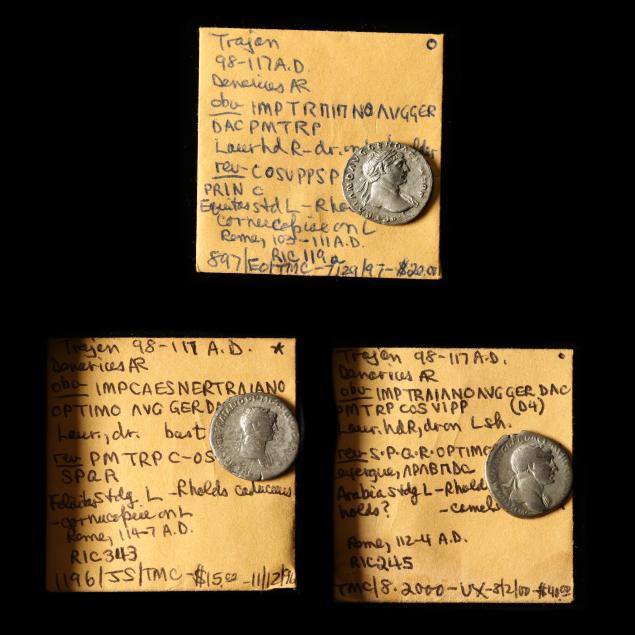 Trajan
98-117 A.D.
Denarius AR
obv IMP TRAIANO AVG GER
DAC PM TRP
Laur hd R - dr. on
rev COS V PP SP
PRIN C
Equitas std L - Rho
cornucopiae on L
Rome, 103-111 A.D.
RIC 119a
897/EO/TMC-7/29/97-$20.00
Trajan 98-117 A.D. *
Denarius AR
obv IMP CAES NER TRAIANO
OPTIMO AVG GER DA
Laur., dr. bust
rev PM TRP C-OS
SPQR
Felicitas stdg. L -Rholds caduceus
-cornucopiae on L
Rome, 114-7 A.D.
RIC 343
1196/JS/TMC-$15.00-11/12/96
Trajan 98-117 A.D.
Denarius AR
obv IMP TRAIANO AVG GER DAC
PM TRP COS VI PP (D4)
Laur. hd R, dr on L sh.
rev S.P.Q.R. OPTIMO
exergue, ARAB ADQ
Arabia stdg L - Rhold
holds? -camel
Rome, 112-4 A.D.
RIC 245
TMC/8.2000-VX-8/2/00-$40.00